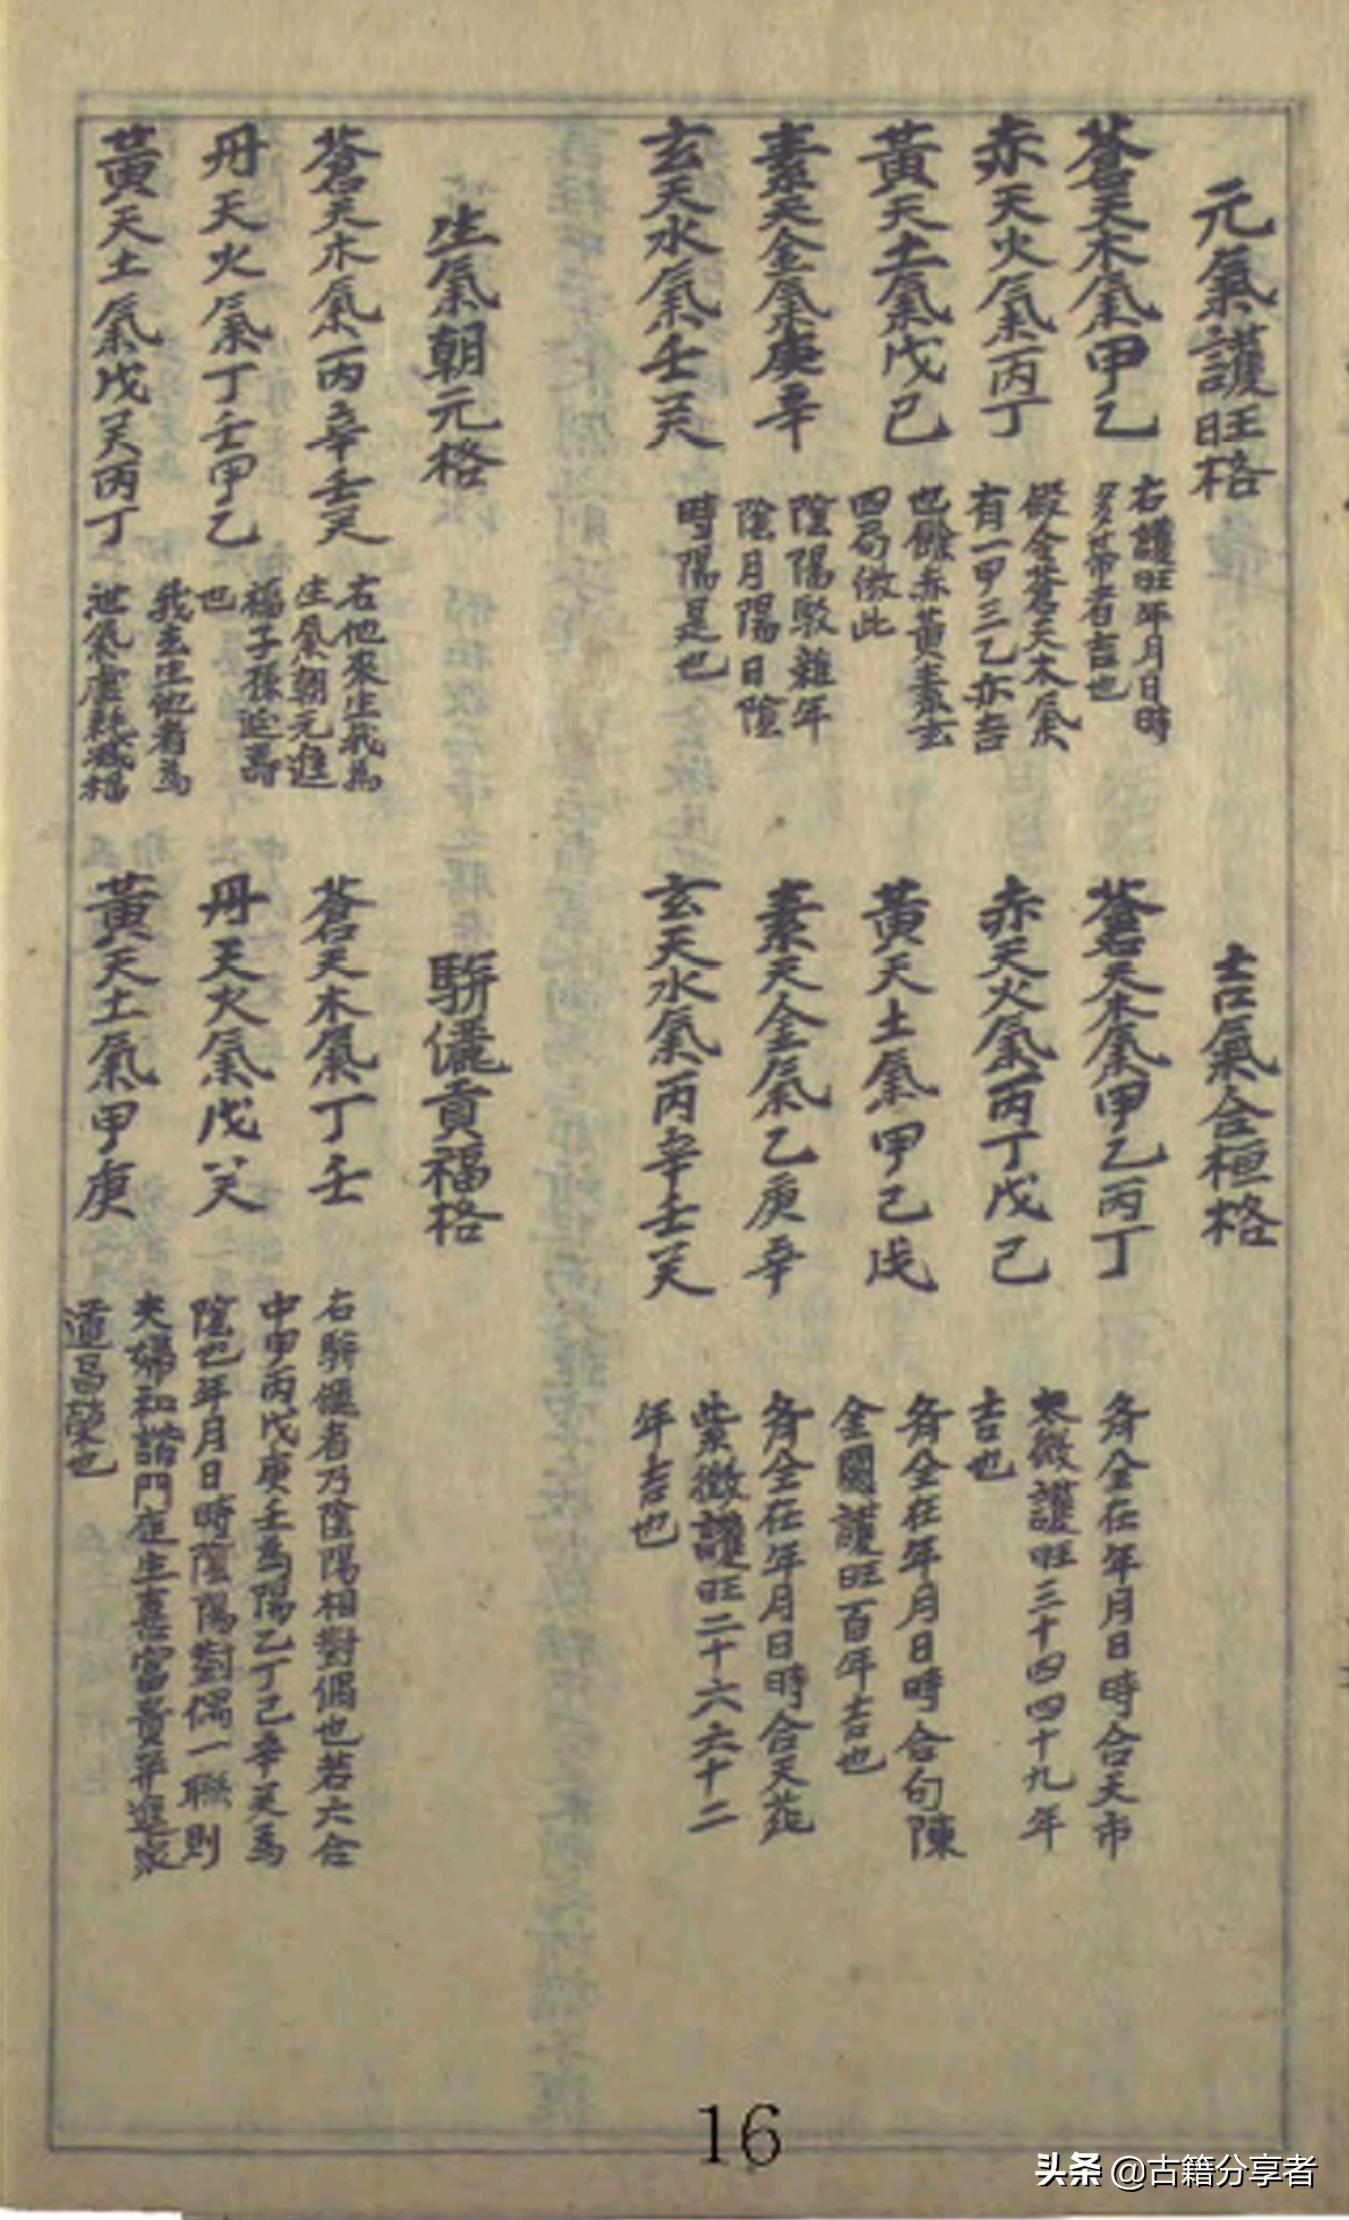 元氣護旺格
蒼天木氣甲乙
赤天火氣丙丁
黃天土氣戊己
素天金氣庚辛
玄天水氣壬癸
右護旺年月日時
多帶者吉也
假令蒼天木氣
有一甲三乙亦吉
也餘赤黃素玄
四局倣此
陰陽駁雜年
陰月陽日陰
時陽是也
吉氣合桓格
蒼天木氣甲乙丙丁
赤天火氣丙丁戊己
黃天土氣甲己戊
素天金氣乙庚辛
玄天水氣丙辛壬癸
全在年月日時合天市
太微護旺三十四四十九年
吉也
全在年月日時合句陳
金闕護旺百年吉也
全在年月日時合天苑
紫微護旺二十六六十二
年吉也
生氣朝元格
蒼天木氣丙辛壬癸
丹天火氣丁壬甲乙
黃天土氣戊癸丙丁
右他來生我為
生氣朝元進
福子孫延壽
也
我去生他者為
泄氣虛耗減福
駢儷貢福格
蒼天木氣丁壬
丹天火氣戊癸
黃天土氣甲庚
右駢儷者乃陰陽相對偶也若六合
中甲丙戊庚壬為陽乙丁己辛癸為
陰也年月日時陰陽對偶一聯則
夫婦和諧門庭生喜富貴并進家
道昌榮也
16
头条 @古籍分享者